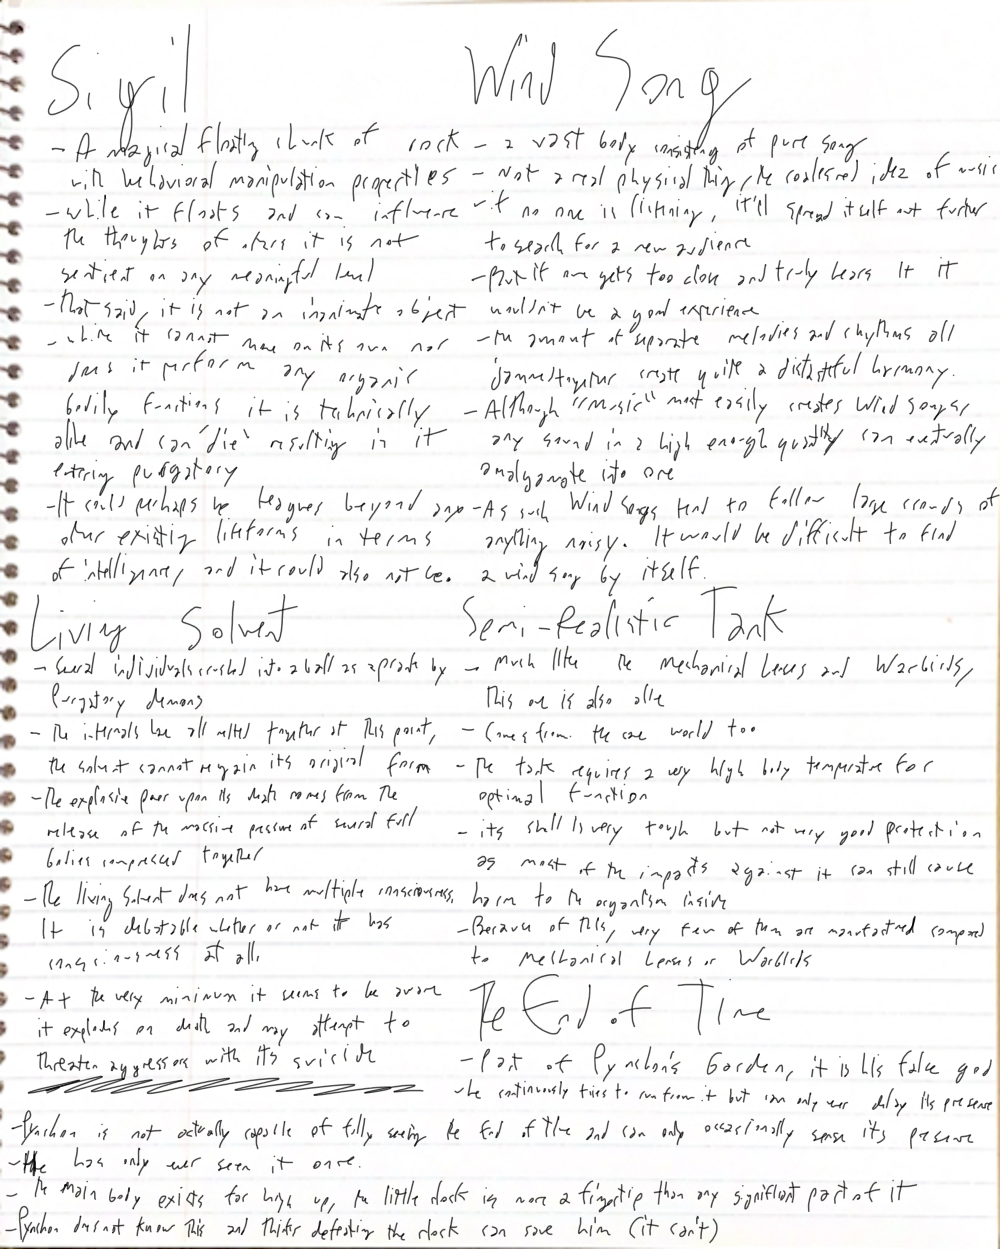 Sigil
- A magical floaty chunk of rock
with behavioral manipulation properties
- while it floats and can influence
the thoughts of others it is not
sentient on any meaningful level
- That said, it is not an inanimate object
- while it cannot move on its own nor
does it perform any organic
bodily functions it is technically
alive and can 'die' resulting in it
entering purgatory
- It could perhaps be leagues beyond any
other existing lifeforms in terms
of intelligence, and it could also not be.
Wind Song
- a vast body consisting of pure song
- Not a real physical thing, the coalesced idea of music
- if no one is listening, it'll spread itself out further
to search for a new audience
- But if one gets too close and truly hears it it
wouldn't be a good experience
- the amount of separate melodies and rhythms all
jammed together create quite a distasteful harmony.
- Although "music" most easily creates Wind Songs,
any sound in a high enough quantity can eventually
amalgamate into one
- As such Wind Songs tend to follow large crowds of
anything noisy. It would be difficult to find
a wind song by itself.
Living Solvent
- several individuals crushed into a ball as a prank by
Purgatory demons
- The internals have all melted together at this point,
the solvent cannot regain its original form
- The explosive power upon its death comes from the
release of the massive pressure of several full
bodies compressed together
- The living solvent does not have multiple consciousness.
It is debatable whether or not it has
consciousness at all.
- At the very minimum it seems to be aware
it explodes on death and may attempt to
threaten aggressors with its suicide
Semi-Realistic Tank
- Much like the Mechanical Lenses and Warbirds,
this one is also alive
- Comes from the one world too
- The tank requires a very high body temperature for
optimal function
- its shell is very tough but not very good protection
as most of the impacts against it can still cause
harm to the organism inside
- Because of this, very few of them are manufactured compared
to Mechanical Lenses or Warbirds
The End of Time
- Part of Pynchon's Garden, it is his false god
- he continuously tries to run from it but can only ever delay its presence
- Pynchon is not actually capable of fully seeing the End of Time and can only occasionally sense its presence
- He has only ever seen it once.
- The main body exists far high up, the little clock is more a fingertip than any significant part of it
- Pynchon does not know this and thinks defeating the clock can save him (it can't)